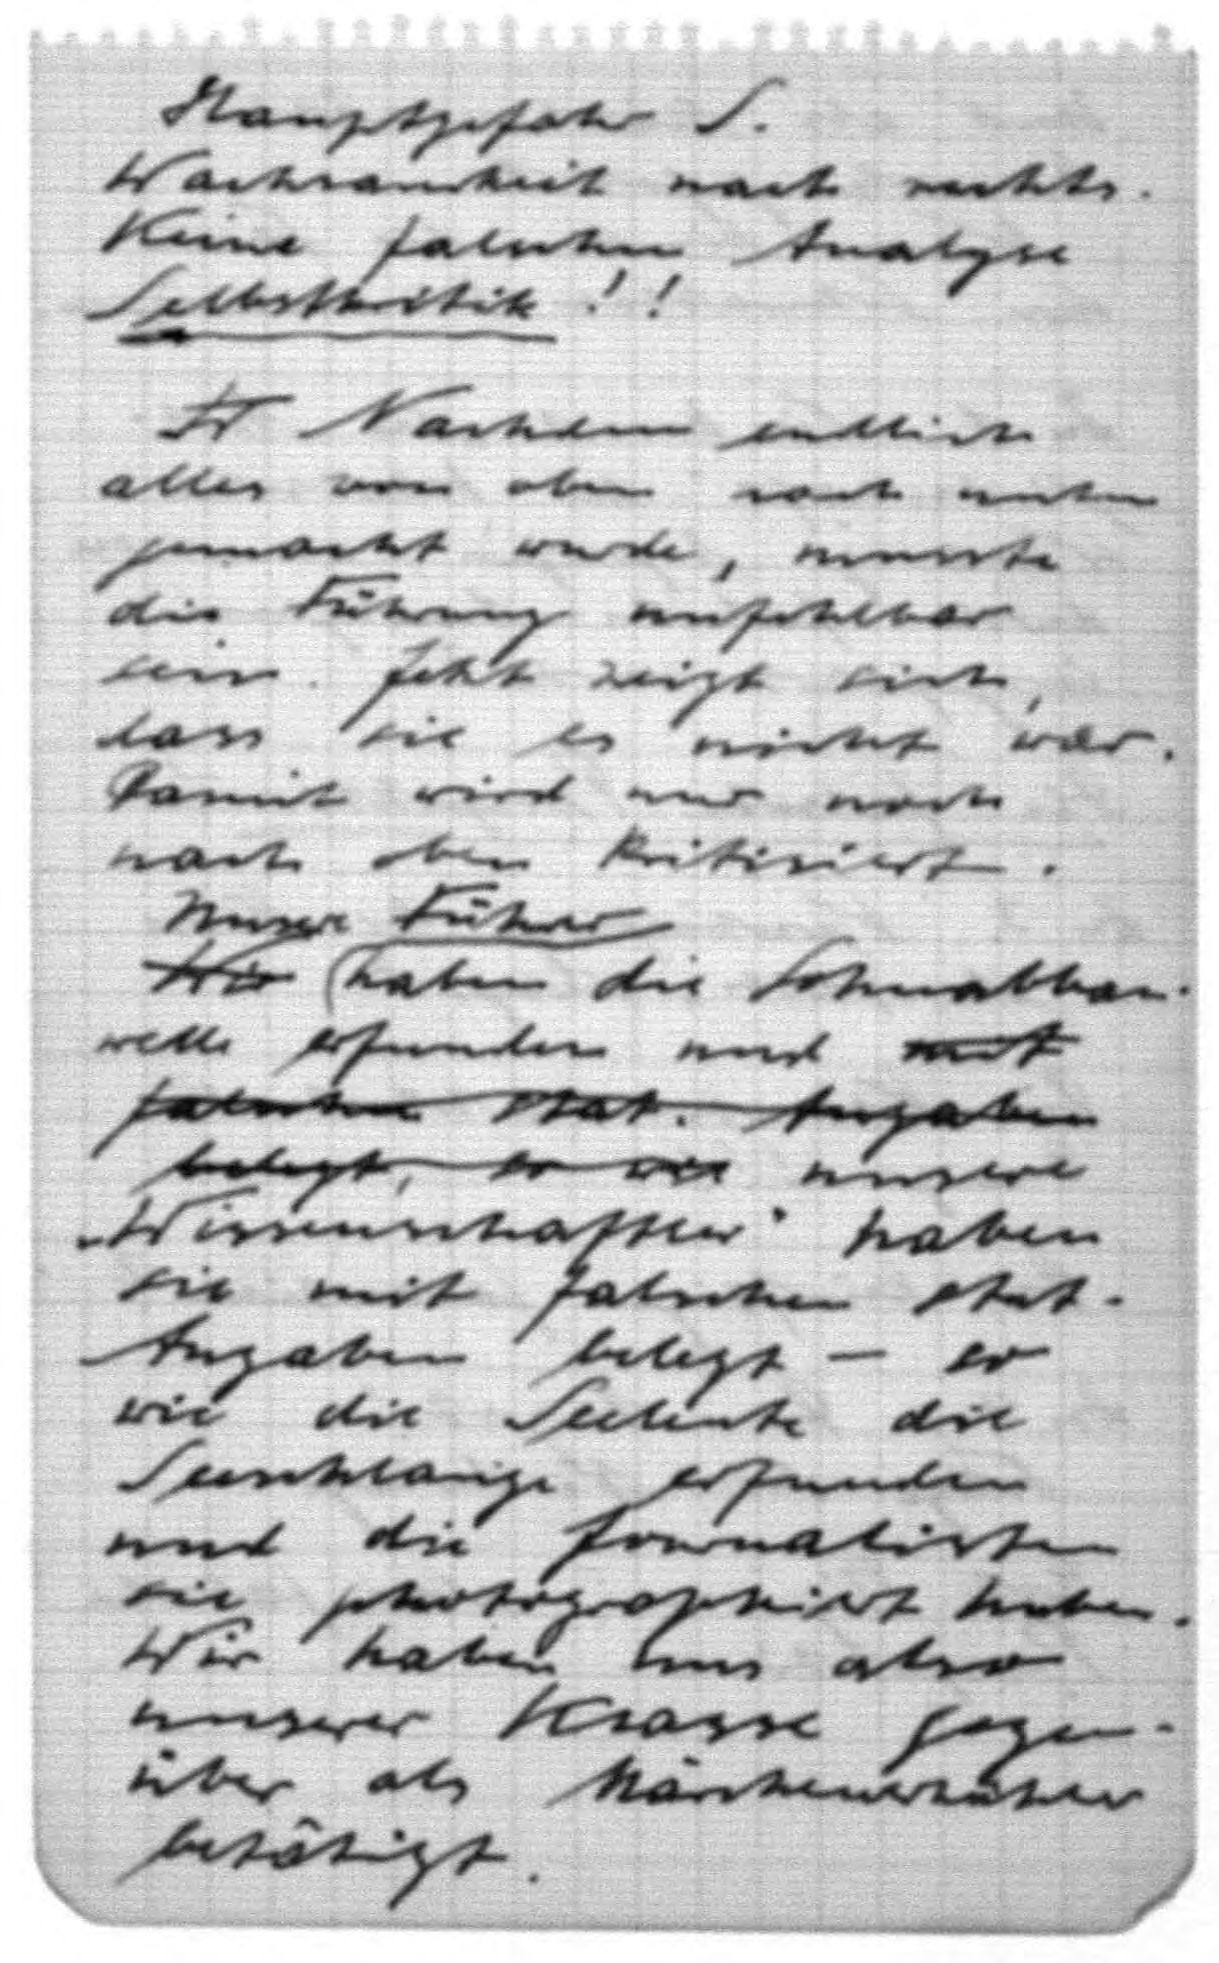 Hauptgefahr S.
Wachsamkeit nach rechts.
Keine falschen Analyse
Selbstkritik !!
Nachdem endlich
alles von oben nach unten
gemacht wurde, musste
die Führung unfehlbar
sein. Jetzt zeigt sich,
dass sie es nicht war.
Damit wird nur noch
nach oben kritisiert.
Unsere Führer
Wir haben die
welle erfunden und mit
falschen stat. Angaben
belegt, so wie unsere
„Wissenschaftler" haben
sie mit falschen stat.
Angaben belegt – so
wie die Seeleute die
Seeschlange erfunden
und die Journalisten
sie photographiert haben.
Wir haben uns also
unserer Klasse gegen-
über als Märchenerzähler
betätigt.